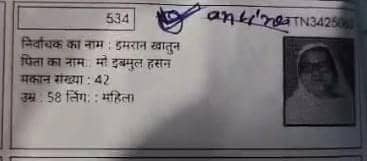 534
निर्वाचक का नाम : इमरान खातुन
पिता का नाम:. मो इबमुल हसन
मकान संख्या : 42
उम्र : 58 लिंग: : महिला